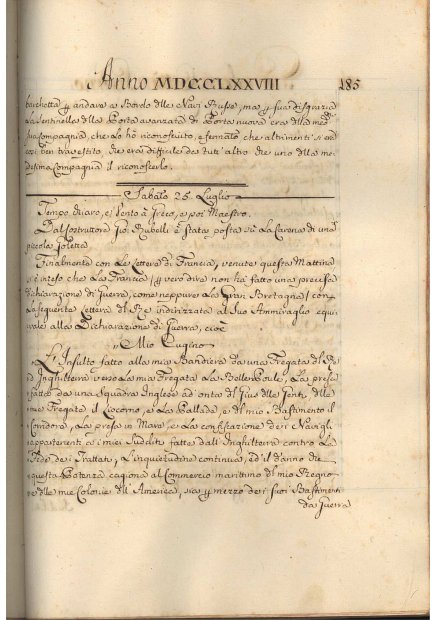 Anno MDCCLXXVIII 185
barchetta p andare a Bordo dlle Navi Russe, ma p sua disgrazia
la Sentinella dlla Porta avanzata di Porta nuova era dlla med.ma
sua Compagnia, che lo hà riconosciuto, e fermato, che altrimenti si era
così ben travestito che era difficile che tutt' altro che uno dlla me-
desima Compagnia il riconoscerlo.
Sabato 25 Luglio
Tempo chiaro, ed il vento à Greco, e poi Maestro.
Dal Costruttore Gioi Rubelli è stata posta sù la Carena di una
piccola Goletta
Finalmente con le Lettere di Francia, venute questa Mattina
si è inteso che la Francia p vero dire non hà fatto una precisa
dichiarazione di Guerra, come neppure la Gran Bretagna, con
la seguente Lettera del Rè indirizzata al suo Ammiraglio equi-
vale alla Dichiarazione di Guerra, cioè
Mio Cugino
L'Insulto fatto alla mia Bandiera da una Fregata dl Rè
d' Inghilterra verso la mia Fregata la Belle Poule, La presa
fatta da una Squadra Inglese ad onta dl Gius dlle Genti, dlle
mie Fregate il Liocorno, e la Pallade, e dl mio Bastimento il
Corridore, La presa in Mare, e la confiscazione dei Navigli
appartenenti ai miei Sudditi fatta dall' Inghilterra contro la
Fede dei Trattati, L'inquietudine continua, ed il danno che
questa Potenza cagiona al Commercio marittimo dl mio Regno
e dlle mie Colonie dll' America, sia p mezzo dei suoi Bastimenti
da Guerra